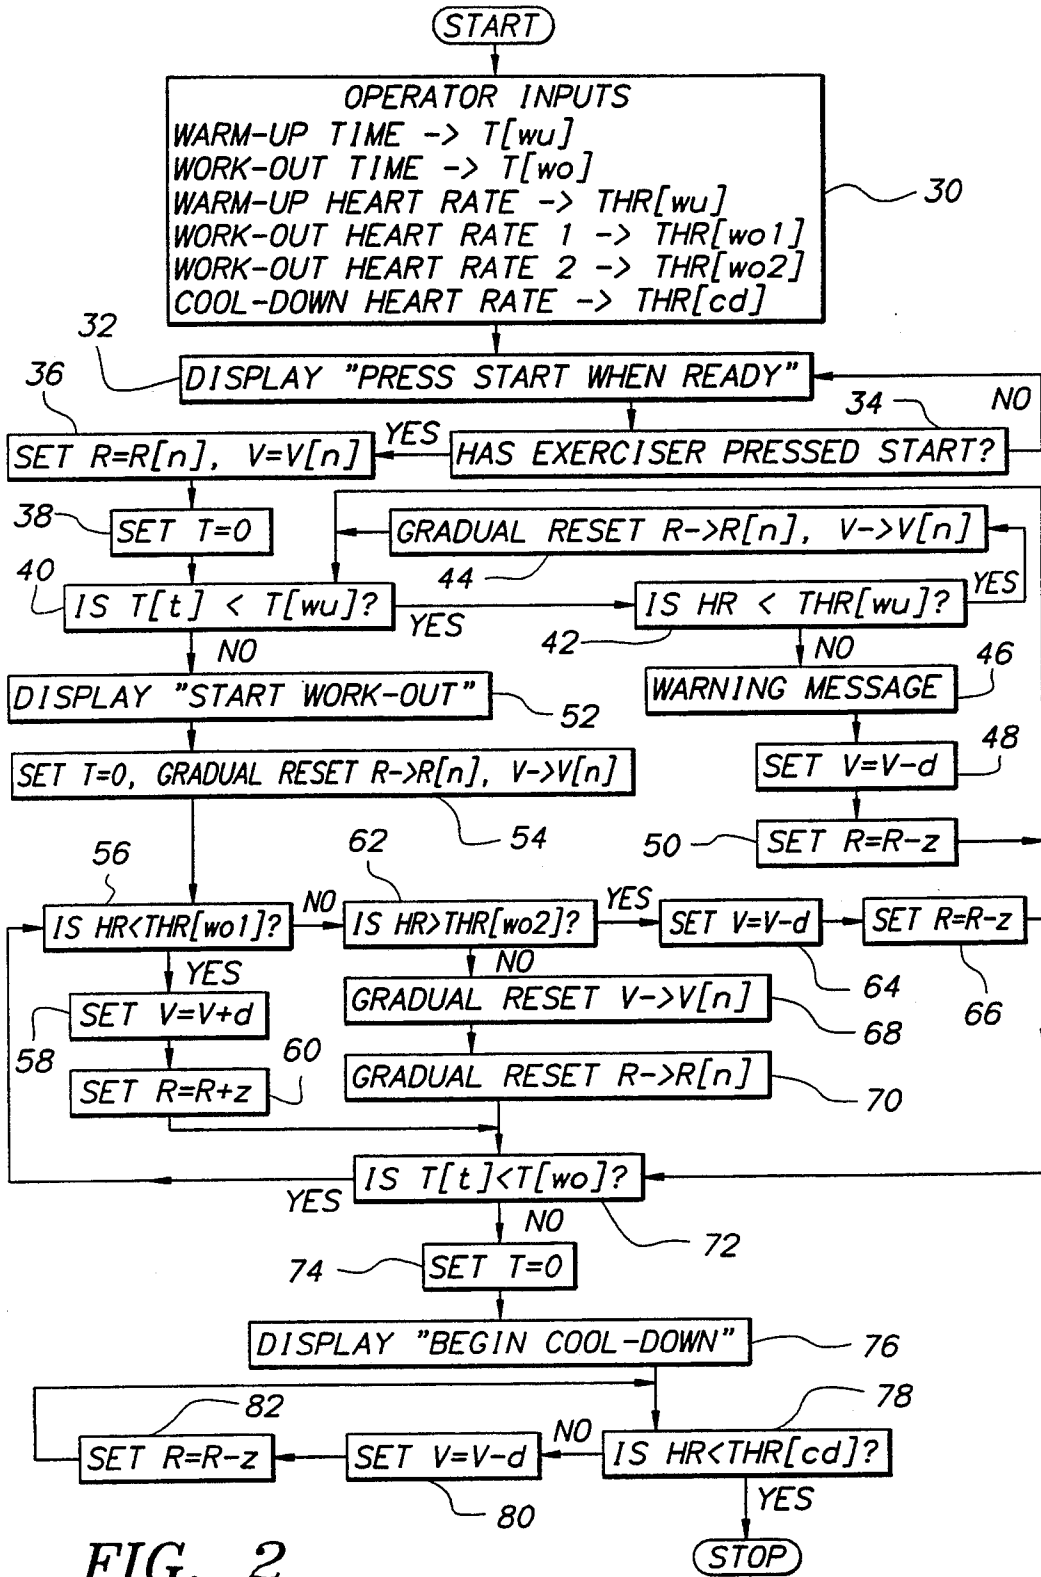 START
OPERATOR INPUTS
WARM-UP TIME -> T[wu]
WORK-OUT TIME -> T[wo]
WARM-UP HEART RATE -> THR[wu]
WORK-OUT HEART RATE 1 -> THR[wo1]
WORK-OUT HEART RATE 2 -> THR[wo2]
COOL-DOWN HEART RATE -> THR[cd]
30
32
DISPLAY "PRESS START WHEN READY"
36
34
NO
SET R=R[n], V=V[n]
YES
HAS EXERCISER PRESSED START?
38
SET T=0
GRADUAL RESET R->R[n], V->V[n]
40
44
IS T[t] < T[wu]?
YES
IS HR < THR[wu]?
YES
42
NO
NO
46
DISPLAY "START WORK-OUT"
52
WARNING MESSAGE
48
SET T=0, GRADUAL RESET R->R[n], V->V[n]
SET V=V-d
54
50
SET R=R-z
56
62
IS HR<THR[wo1]?
NO
IS HR>THR[wo2]?
YES
SET V=V-d
SET R=R-z
YES
NO
64
66
58
SET V=V+d
GRADUAL RESET V->V[n]
68
60
SET R=R+z
GRADUAL RESET R->R[n]
70
IS T[t]<T[wo]?
YES
NO
72
74
SET T=0
DISPLAY "BEGIN COOL-DOWN"
76
82
78
SET R=R-z
SET V=V-d
NO
IS HR<THR[cd]?
80
YES
STOP
FIG. 2